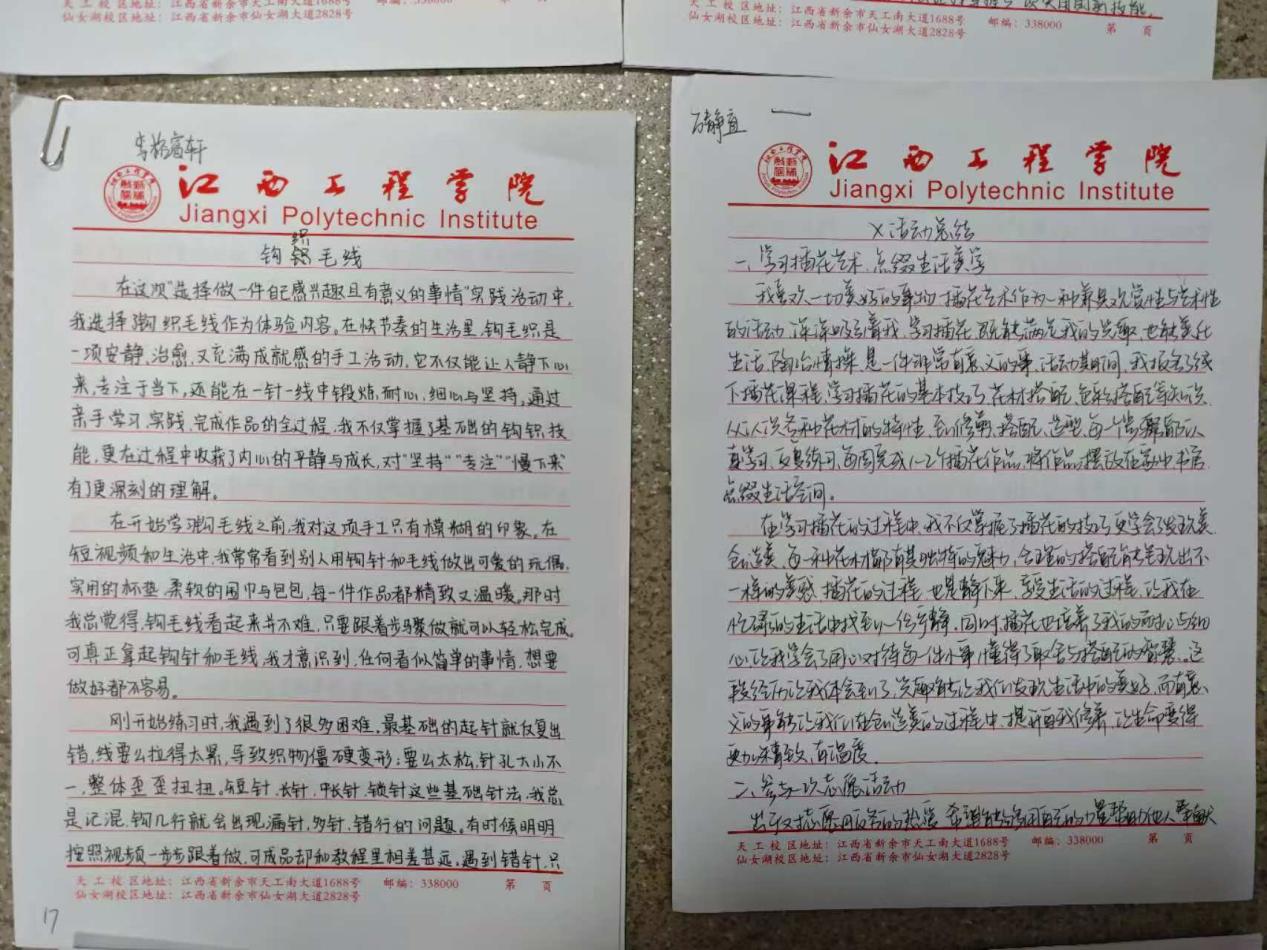 天工校区地址：江西省新余市天工南大道1688号 邮编：338000 第 页
仙女湖校区地址：江西省新余市仙女湖大道2828号
天工校区地址：江西省新余市天工南大道1688号 邮编：338000 第 页
仙女湖校区地址：江西省新余市仙女湖大道2828号
江西工程学院
Jiangxi Polytechnic Institute
钩织毛线
在这次"选择做一件自己感兴趣且有意义的事情"实践活动中,
我选择钩织毛线作为体验内容。在快节奏的生活里,钩毛织是
一项安静,治愈,又充满成就感的手工活动,它不仅能让人静下心
来,专注于当下,还能在一针一线中锻炼耐心,细心与坚持,通过
亲手学习,实践,完成作品的全过程,我不仅掌握了基础的钩织技
能,更在过程中收获了内心的平静与成长,对"坚持""专注""慢下来"
有了更深刻的理解。
在开始学习钩毛线之前,我对这项手工只有模糊的印象。在
短视频和生活中,我常常看到别人用钩针和毛线做出可爱的玩偶,
实用的杯垫,柔软的围巾与包包,每一件作品都精致又温暖。那时
我总觉得,钩毛线看起来并不难,只要跟着步骤做就可以轻松完成。
可真正拿起钩针和毛线,我才意识到,任何看似简单的事情,想要
做好都不容易。
刚开始练习时,我遇到了很多困难,最基础的起针就反复出
错,线要么拉得太累,导致织物僵硬变形;要么太松,针孔大小不
一,整体歪歪扭扭。短针,长针,中长针,锁针这些基础针法,我总
是记混,钩几行就会出现漏针,多针,错行的问题。有时候明明
按照视频一步步跟着做,可成品却和教程里相差甚远,遇到错针,只
天工校区地址：江西省新余市天工南大道1688号 邮编：338000 第 页
仙女湖校区地址：江西省新余市仙女湖大道2828号
17
江西工程学院
Jiangxi Polytechnic Institute
X活动总结
一、学习插花艺术,点缀生活美学
我喜欢一切美好的事物,插花艺术作为一种兼具观赏性与艺术性
的活动,深深吸引着我,学习插花,既能满足我的兴趣,也能美化
生活,陶冶情操,是一件非常有意义的事,活动期间,我报名了线
下插花课程,学习插花的基本技巧,花材搭配,色彩搭配等知识,
从认识各种花材的特性,到修剪,搭配,造型,每一个步骤都认
真学习,反复练习,每周完成1-2个插花作品,将作品摆放在家中书房,
点缀生活空间。
在学习插花的过程中,我不仅掌握了插花的技巧,更学会了发现美
创造美,每一种花材都有其独特的魅力,合理的搭配能呈现出不
一样的美感,插花的过程,也是静下来,享受生活的过程,让我在
忙碌的生活中找到一份宁静,同时,插花也培养了我的耐心与细
心,让我学会了用心对待每一件小事,懂得了取舍与搭配的智慧。这
段经历让我体会到了,兴趣能让我们发现生活中的美好,而有意
义的事能让我们在创造美的过程中,提升自我修养,让生命变得
更加精致,有温度。
二、参与一次志愿活动
出于对志愿服务的热爱,希望能够用自己的力量帮助他人,奉献
天工校区地址：江西省新余市天工南大道1688号 邮编：338000 第 页
仙女湖校区地址：江西省新余市仙女湖大道2828号